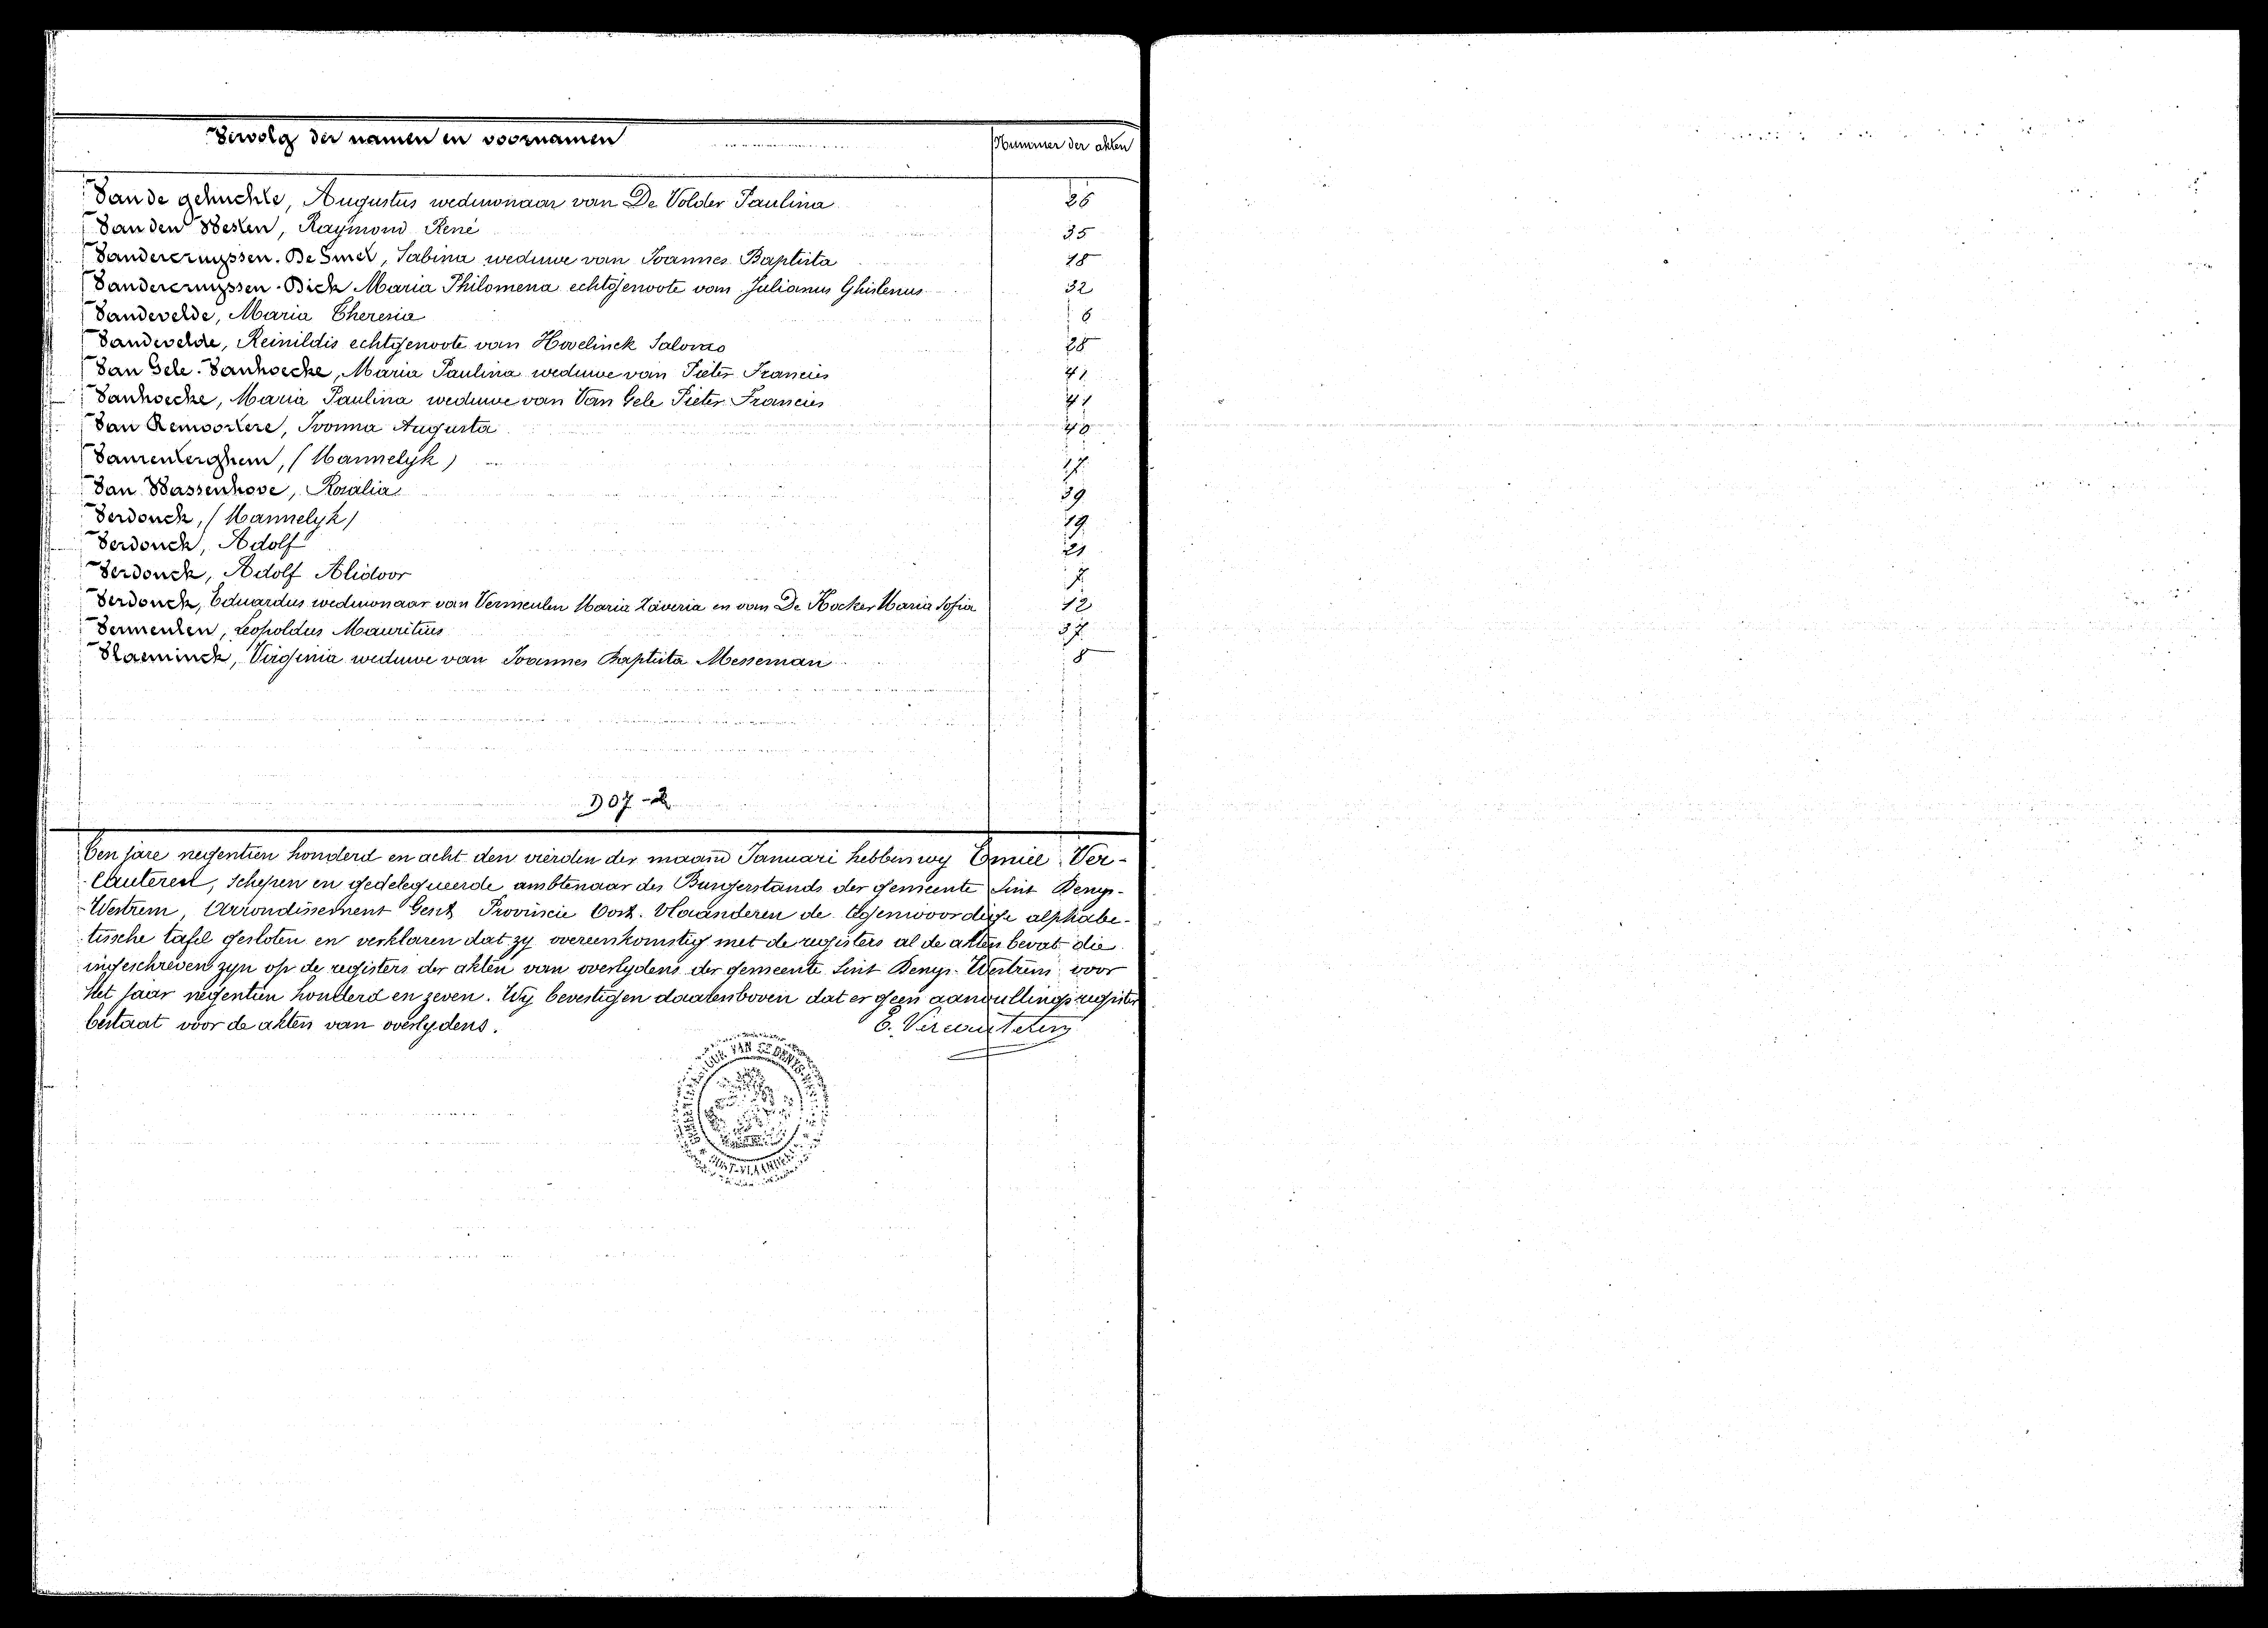 Vervolg der namen en voornamen Nummer der akten
Van de gehuchte, Augustus weduwnaar van De Volder Paulina 26
Van den Besten, Raymond René 35
Vandercruyssen-De Smet, Sabina weduwe van Joannes Baptista 18
Vandercruyssen-Dick Maria Philomena echtgenoote van Julianus Ghislenus 32
Vandevelde, Maria Theresia 6
Vandevelde, Reinildis echtgenoote van Hovelinck 28
Van Gele-Vanhoecke, Maria Paulina weduwe van Pieter Francies 41
Vanhoecke, Maria Paulina weduwe van Van Gele Pieter Francies 41
Van Remoortere, Ivonna Augusta 40
Vanrenterghem, (Mannelyk) 17
Van Wassenhove, Rosalia 39
Verdonck, (Mannelyk) 19
Verdonck, Adolf 21
Verdonck, Adolf Alidoor 7
Verdonck, Eduardus weduwnaar van Vermeulen Maria Xaveria en van De Kocker Maria Sofia 12
Vermeulen, Leopoldus Mauritius 37
Vlaeminck, Virginia weduwe van Joannes Baptista Messeman 8
907-2
Ten jare negentien honderd en acht den vierden der maand Januari hebben wy Emiel Ver-
cauteren, Schepen en gedelegueerde ambtenaar des Burgerstands der gemeente Sint Denys-
Westrem, Arrondissement Gent Provincie Oost-Vlaanderen de tegenwoordige alphabe-
tische tafel gesloten en verklaren dat zy overeenkomstig met de registers al de akten bevat die
ingeschreven zyn op de registers der akten van overlydens der gemeente Sint Denys-Westrem voor
het jaar negentien honderd en zeven. Wy bevestigen daarenboven dat er geen aanvullingsregister
bestaat voor de akten van overlydens. E. Vercauteren
VAN ST DENYS-WES
OOST-VLAANDEREN